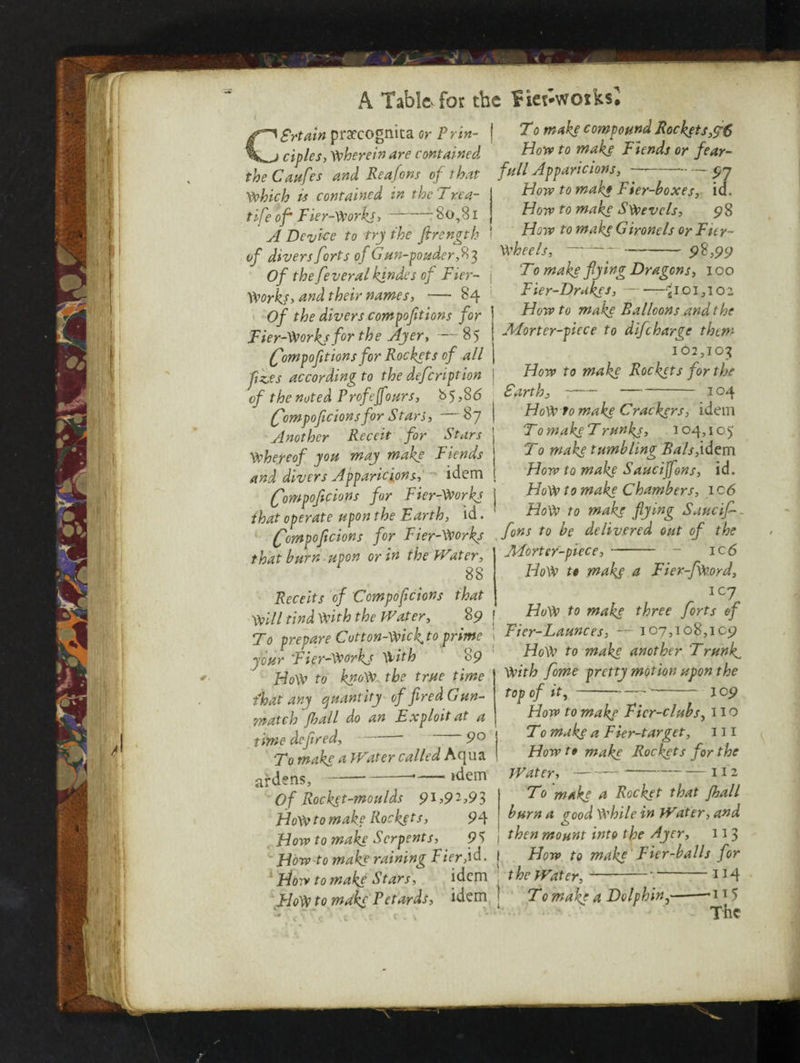 A Table for the Fier-works.
CErtain præcognita or Prin-
ciples, wherein are contained
the Causes and Reasons of that
which is contained in the Trea-
tise of Fier-works, ——80,81
A Device to try the strength
of divers sorts of Gun-pouder,83
Of the several kindes of Fier-
works, and their names, —— 84
Of the divers compositions for
Fier-works for the Ayer, — 85
Compositions for Rockets of all
sizes according to the description
of the noted Professours, 85,86
Composicions for Stars, — 87
Another Receit for Stars
whereof you may make Fiends
and divers Apparicions, idem
Composicions for Fier-works
that operate upon the Earth, id.
Composicions for Fier-works
that burn upon or in the Water,
88
Receits of Composicions that
will tind with the Water, 89
To prepare Cotton-wick to prime
your Fier-works with 89
How to know the true time
that any quantity of fired Gun-
match shall do an Exploit at a
time desired, —— ——90
To make a Water called Aqua
ardens, —————— idem
Of Rocket-moulds 91,92,93
How to make Rockets, 94
How to make Serpents, 95
How to make raining Fier,id.
How to make Stars, idem
How to make Petards, idem
To make compound Rockets,96
How to make Fiends or fear-
full Apparicions, ———— 97
How to make Fier-boxes, id.
How to make Swevels, 98
How to make Gironels or Fier-
wheels, ———— 98,99
To make flying Dragons, 100
Fier-Drakes, ———101,102
How to make Balloons and the
Morter-piece to discharge them
102,103
How to make Rockets for the
Earth, —— ———— 104
How to make Crackers, idem
To make Trunks, 104,105
To make tumbling Bals,idem
How to make Saucissons, id.
How to make Chambers, 106
How to make flying Saucis-
sons to be delivered out of the
Morter-piece, —— - 106
How to make a Fier-sword,
107
How to make three sorts of
Fier-Launces, — 107,108,109
How to make another Trunk
with some pretty motion upon the
top of it, ———— 109
How to make Fier-clubs, 110
To make a Fier-target, 111
How to make Rockets for the
Water, ———————112
To make a Rocket that shall
burn a good while in Water, and
then mount into the Ayer, 113
How to make Fier-balls for
the Water, —————114
To make a Dolphin,——115
The